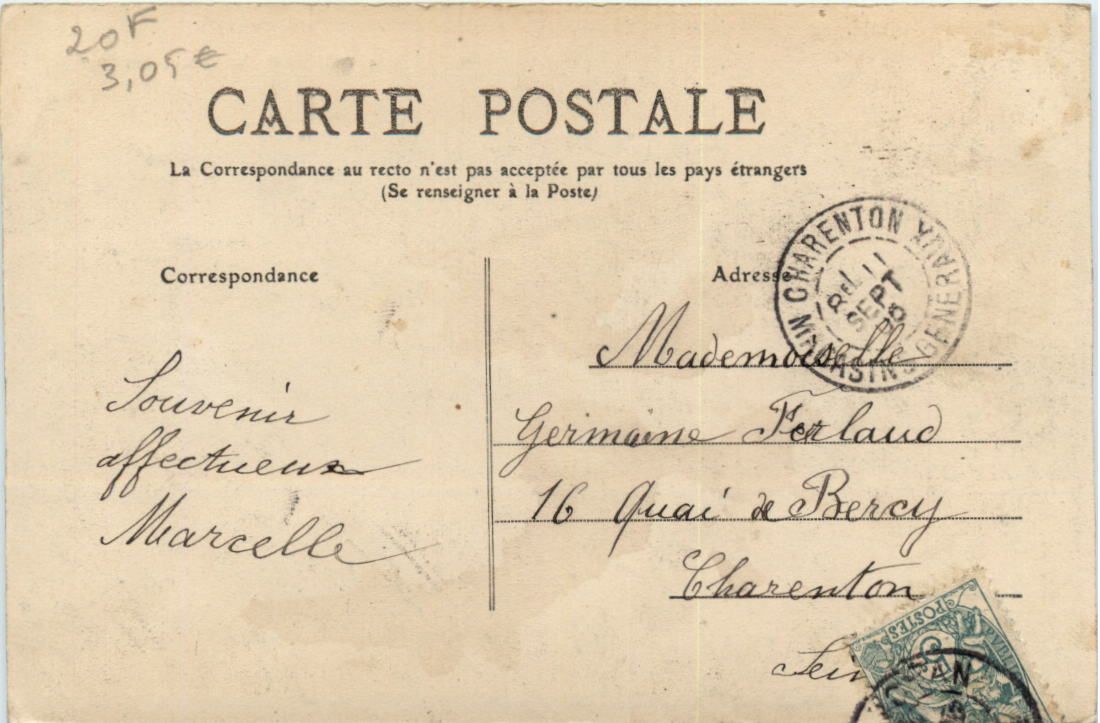 20F
3,05€
CARTE POSTALE
La Correspondance au recto n'est pas acceptée par tous les pays étrangers
(Se renseigner à la Poste)
Correspondance
Adresse
CHARENTON MAGASINS GENERAUX
11
SEPT
Souvenir
affectueux
Marcelle
Mademoiselle
Germaine Ferlaud
16 Quai de Bercy
Charenton
POSTES